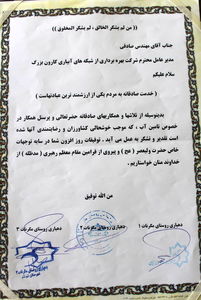 ((من لم یشکر الخالق ، لم یشکر المخلوق))
جناب آقای مهندس صادقی
مدیر عامل محترم شرکت بهره برداری از شبکه های آبیاری کارون بزرگ
سلام علیکم
(خدمت صادقانه به مردم یکی از ارزشمند ترین عبادتهاست)
بدینوسیله از تلاشها و همکاریهای صادقانه حضرتعالی و پرسنل همکار در
خصوص تامین آب ، که موجب خوشحالی کشاورزان و رضایتمندی آنها شده
است تقدیر و تشکر به عمل می آید . توفیقات روز افزون شما در سایه توجهات
خاص حضرت ولیعصر (عج) و پیروی از فرامین مقام معظم رهبری (مدظله) از
خداوند منان خواستاریم .
من الله توفیق
دهیاری روستای مکریات ۱
دهیاری روستای مکریات ۲